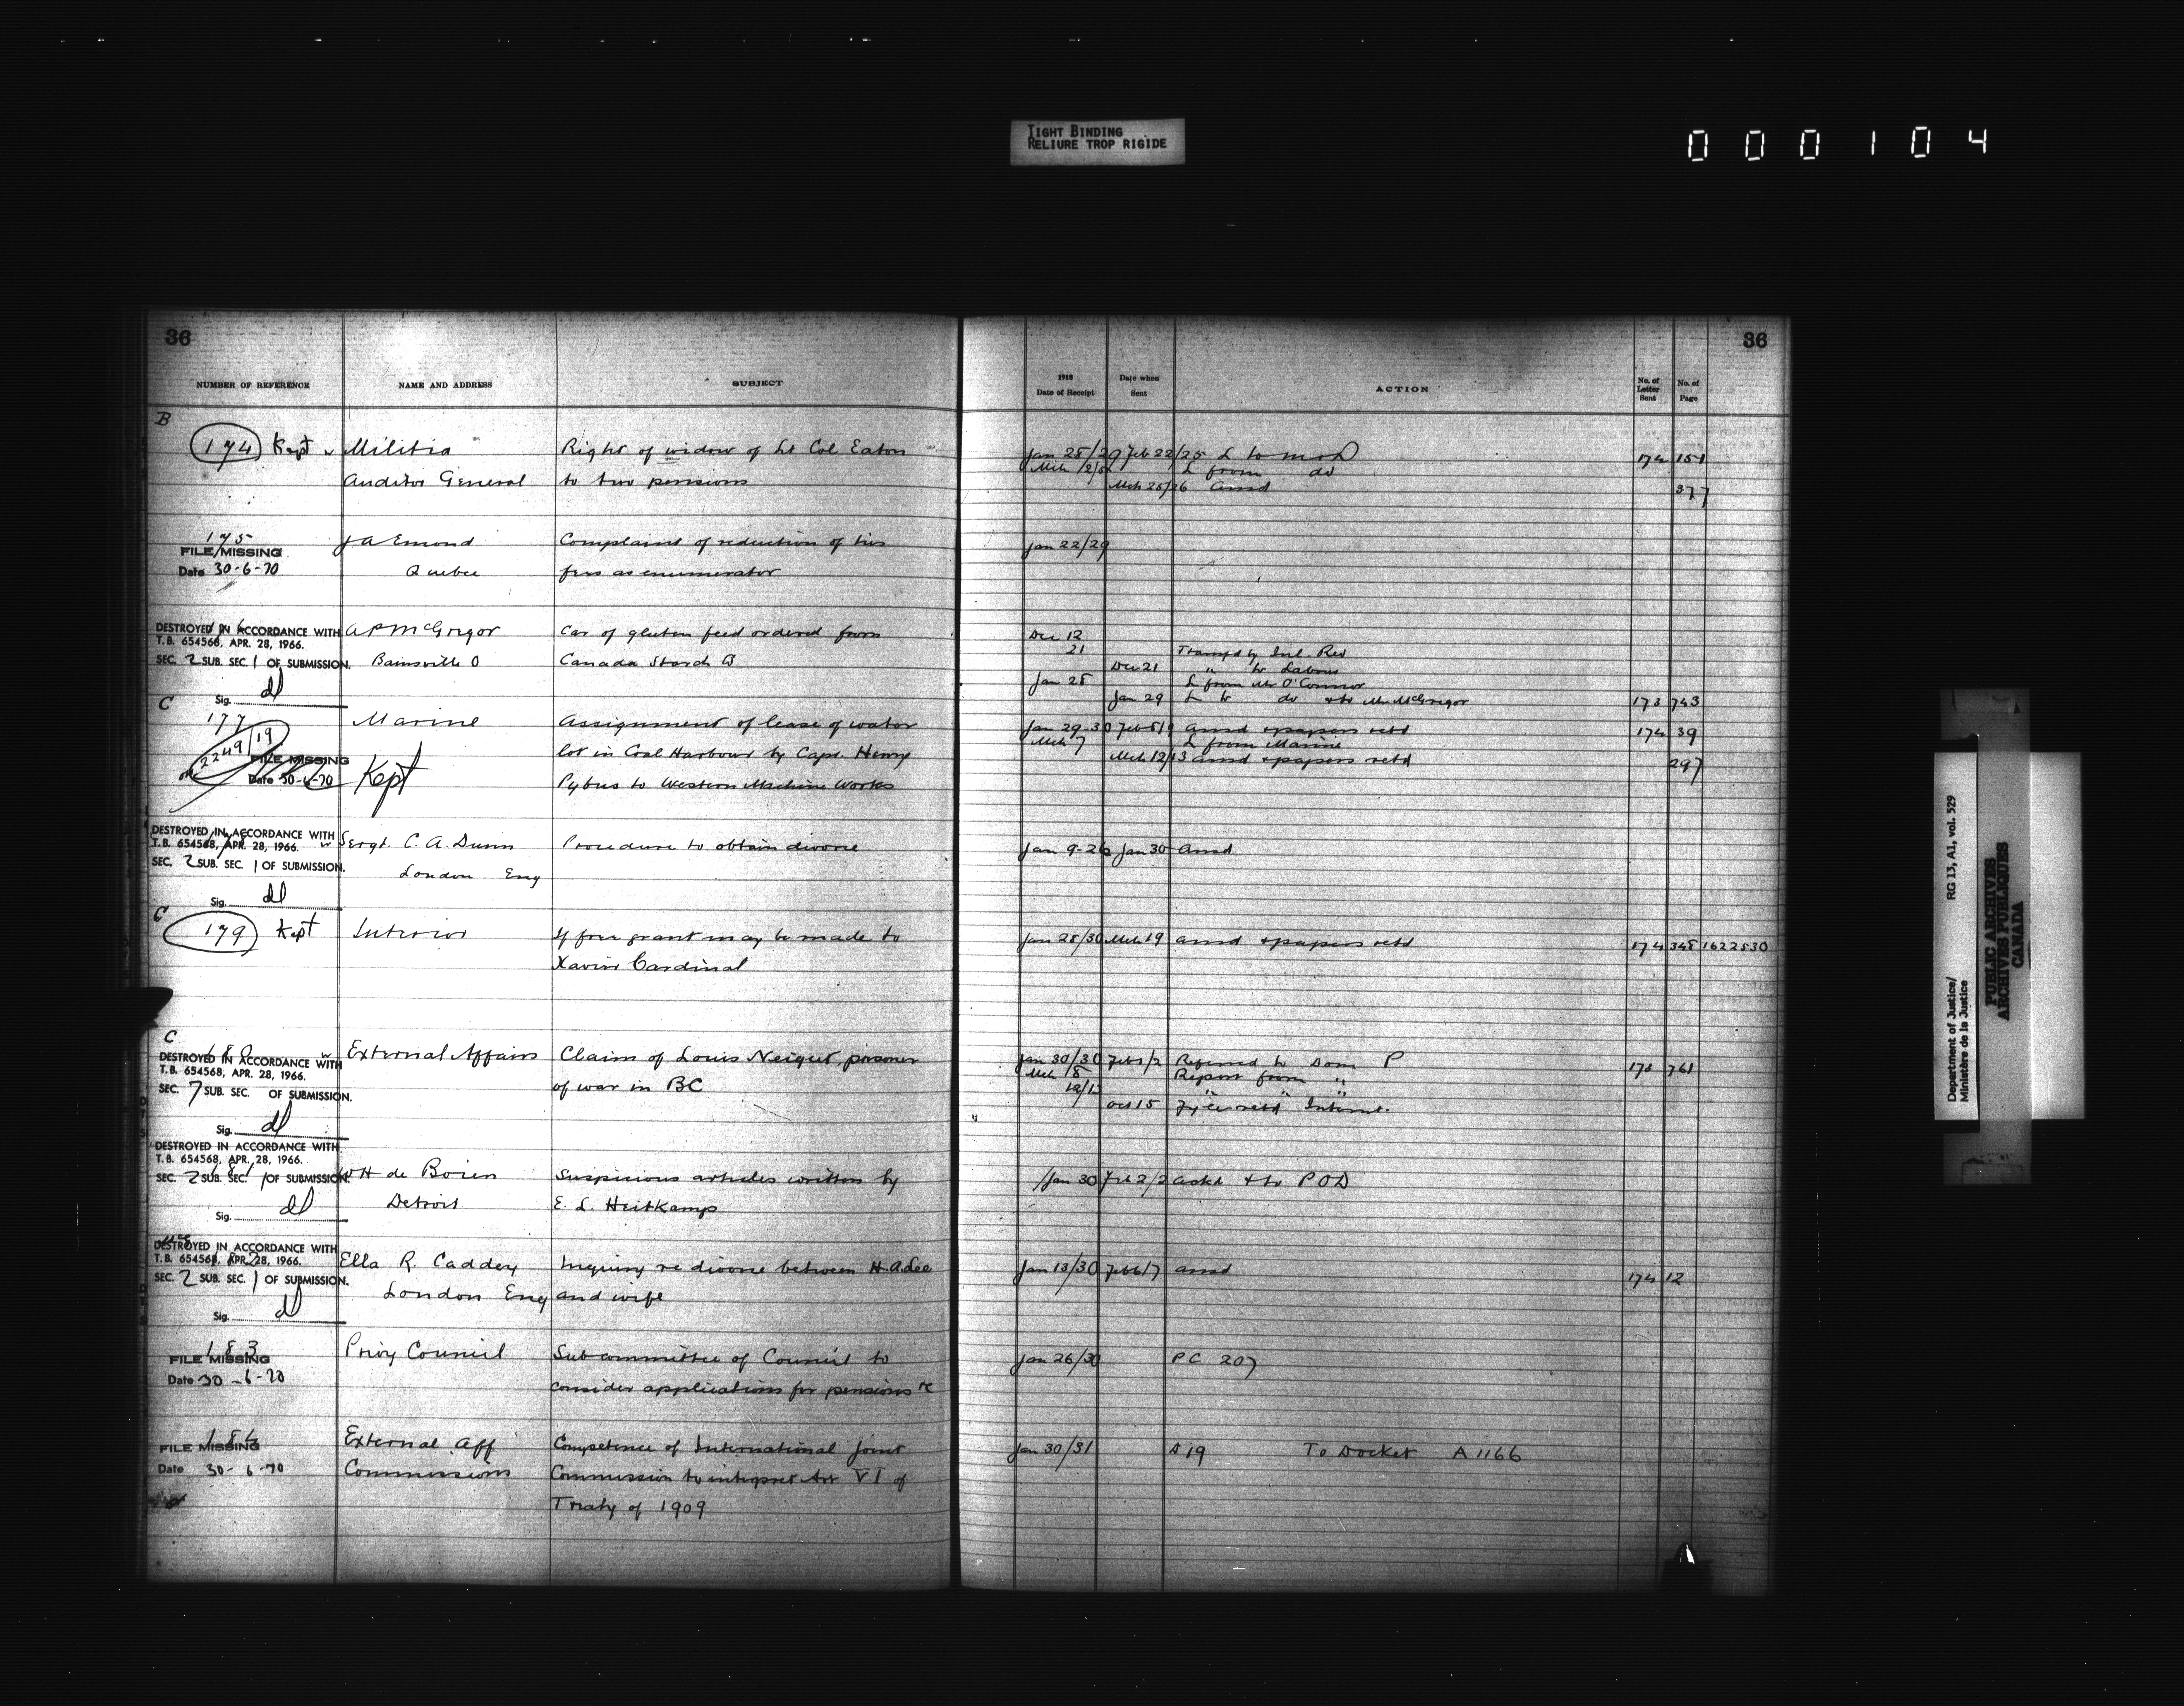 TIGHT BINDING
RELIURE TROP RIGIDE
000104
36
NUMBER OF REFERENCE NAME AND ADDRESS SUBJECT
B
174 Kept Militia Right of widow of Lt Col Eaton
Auditor General to two pensions
175 J A Emond Complaint of reduction of his
FILE MISSING
Date 30-6-70 Quebec fees as enumerator
DESTROYED IN ACCORDANCE WITH A P McGregor Car of gluten feed ordered from
T.B. 654568, APR. 28, 1966.
SEC. 2 SUB. SEC. 1 OF SUBMISSION. Bainsville O Canada Starch Co
Sig. dl
C
177 Marine Assignment of lease of water
2249/19 lot in Coal Harbour by Capt. Henry
FILE MISSING
Date 30-6-70 Kept Pybus to Western Machine Works
DESTROYED IN ACCORDANCE WITH
T.B. 654568, APR. 28, 1966. Sergt. C. A. Dunn Procedure to obtain divorce
SEC. 2 SUB. SEC. 1 OF SUBMISSION. London Eng
Sig. dl
C
179 Kept Interior If free grant may be made to
Xavier Cardinal
C
180 External Affairs Claim of Louis Neigut, prisoner
DESTROYED IN ACCORDANCE WITH
T.B. 654568, APR. 28, 1966.
SEC. 7 SUB. SEC. OF SUBMISSION. of war in BC
Sig. dl
DESTROYED IN ACCORDANCE WITH
T.B. 654568, APR. 28, 1966.
181
SEC. 2 SUB. SEC. 1 OF SUBMISSION. W H de Boien Suspicious articles written by
Sig. dl Detroit E. L. Heitkamp
DESTROYED IN ACCORDANCE WITH
T.B. 654568, APR. 28, 1966. Ella R. Caddey Inquiry re divorce between H. A. Lee
SEC. 2 SUB. SEC. 1 OF SUBMISSION. London Eng and wife
Sig. dl
183 Privy Council Subcommittee of Council to
FILE MISSING
Date 30-6-70 consider applications for pensions &c
184 External Aff Competence of International Joint
FILE MISSING
Date 30-6-70 Commissions Commission to interpret Art VI of
Treaty of 1909
36
1918 Date of Receipt Date when Sent ACTION No. of Letter Sent No. of Page
Jan 28/29 Feb 22/25 L to 174 151
L from do
Mch 25/26 Ansd 377
Jan 22/29
Dec 12
21 Transfd by Inl. Rev
Dec 21 " to Labour
Jan 28 L from Mr O'Connor
Jan 29 L to do & to Mr McGregor 173 743
Jan 29-30 Feb 8/9 Ansd & papers retd 174 39
Mch 7 L from Marine
Mch 12/13 Ansd & papers retd 297
Jan 9-26 Jan 30 Ansd
Jan 28/30 Mch 19 Ansd & papers retd 174 348 1622530
Jan 30/30 Feb 1/2 Referred to Dom P 173 761
Mch /8 Report from "
12/13 " "
Oct 15 retd Internt.
Jan 30 Feb 2/2 Ackd & to POD
Jan 13/30 Feb 6/7 Ansd 174 12
Jan 26/30 PC 207
Jan 30/31 D 19 To Docket A 1166
Department of Justice/ RG 13, A1, vol. 529
Ministère de la Justice
PUBLIC ARCHIVES
ARCHIVES PUBLIQUES
CANADA